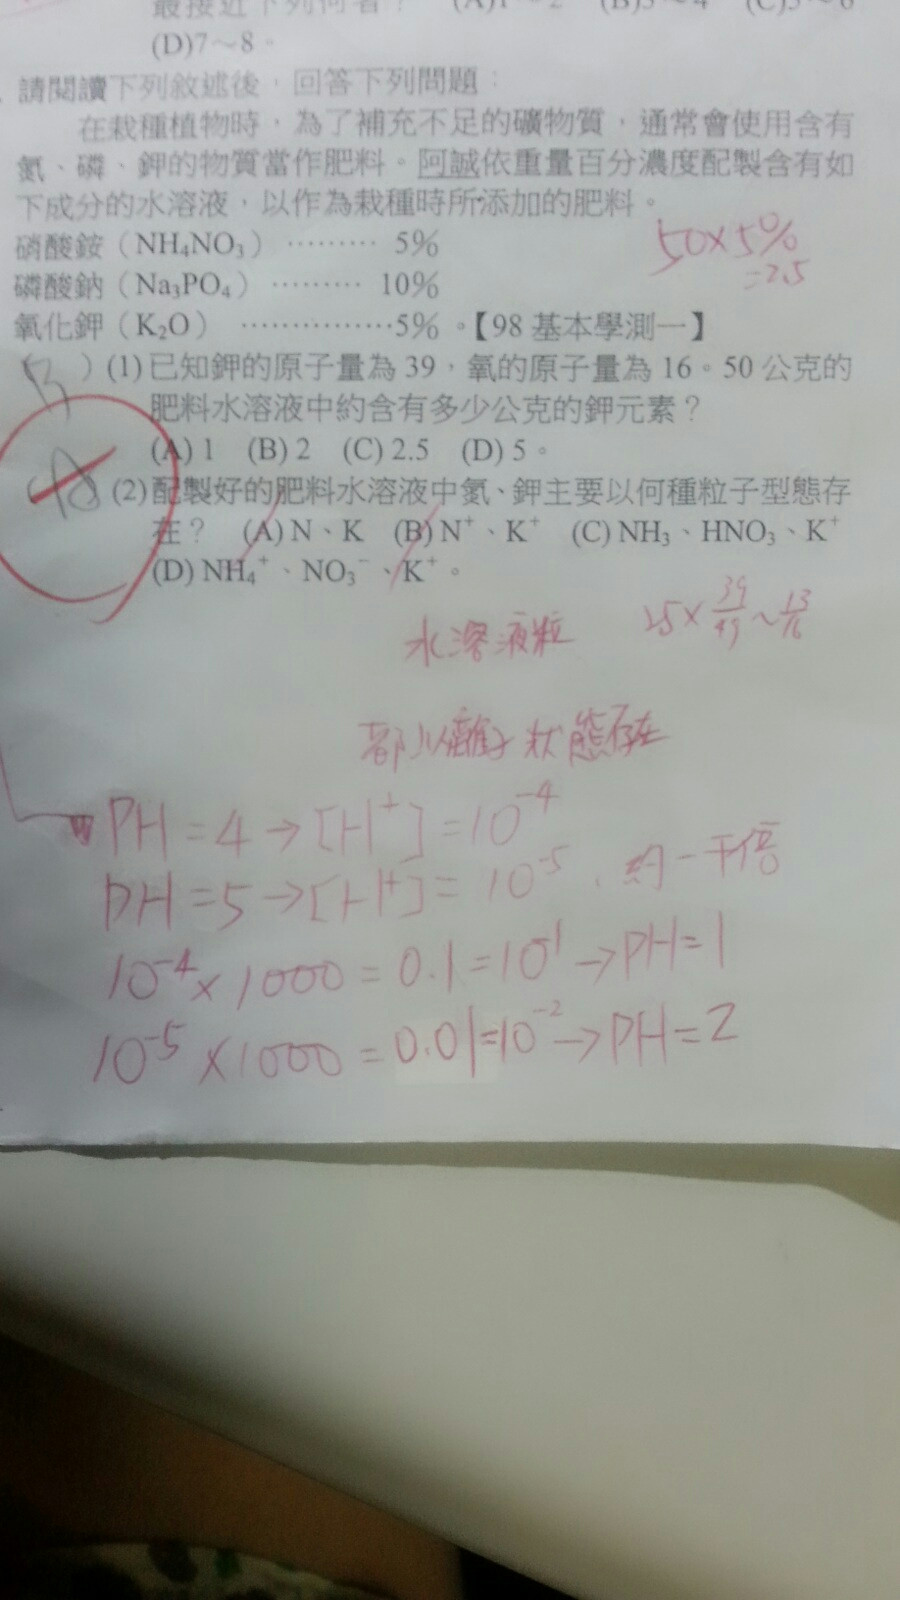 最接近下列何者？ (A)1～2 (B)3～4 (C)5～6
(D)7～8。
請閱讀下列敘述後，回答下列問題：
在栽種植物時，為了補充不足的礦物質，通常會使用含有
氮、磷、鉀的物質當作肥料。阿誠依重量百分濃度配製含有如
下成分的水溶液，以作為栽種時所添加的肥料。
硝酸銨（NH₄NO₃） ……… 5%
磷酸鈉（Na₃PO₄） ……… 10%
氧化鉀（K₂O） ……………5%。【98 基本學測一】
50×5%
=2.5
B ）(1) 已知鉀的原子量為 39，氧的原子量為 16。50 公克的
肥料水溶液中約含有多少公克的鉀元素？
(A) 1 (B) 2 (C) 2.5 (D) 5。
(2) 配製好的肥料水溶液中氮、鉀主要以何種粒子型態存
在？ (A) N、K (B) N⁺、K⁺ (C) NH₃、HNO₃、K⁺
(D) NH₄⁺、NO₃⁻、K⁺。
水溶液粒
都以離子狀態存在
PH=4→[H⁺]=10⁻⁴
PH=5→[H⁺]=10⁻⁵，約一千倍
10⁻⁴×1000=0.1=10⁻¹→PH=1
10⁻⁵×1000=0.01=10⁻²→PH=2